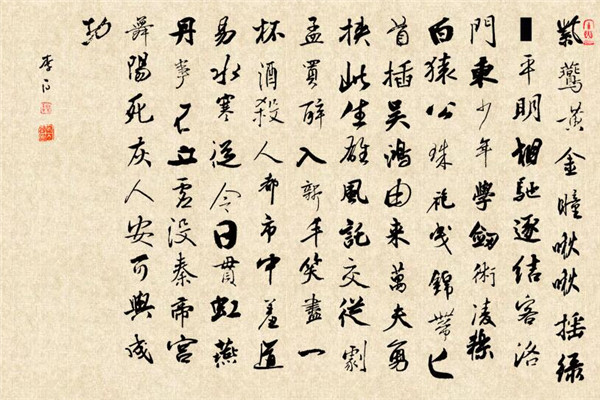 紫鷰黃金瞳啾啾摇緑
平明相馳逐結客洛
門東少年學劔術凌轢
白猿公珠袍曳錦帶匕
首插吳鴻由来萬夫勇
挾此生雄風託交從劇
孟買醉入新丰笑盡一
杯酒殺人都市中羞道
易水寒從令日貫虹燕
丹事不立虛没秦帝宫
舞陽死灰人安可與成
功
李白